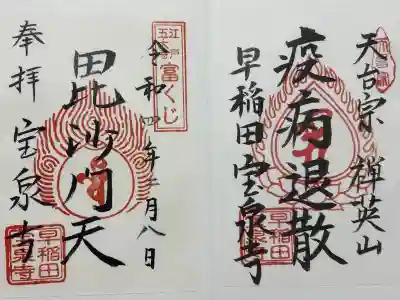 天台宗 禅英山
疫病退散
早稲田 宝泉寺
早稲田
宝泉寺
江戸
五
富くじ
令和四年三月八日
毘沙門天
奉拝
宝泉寺
早稲田
宝泉寺